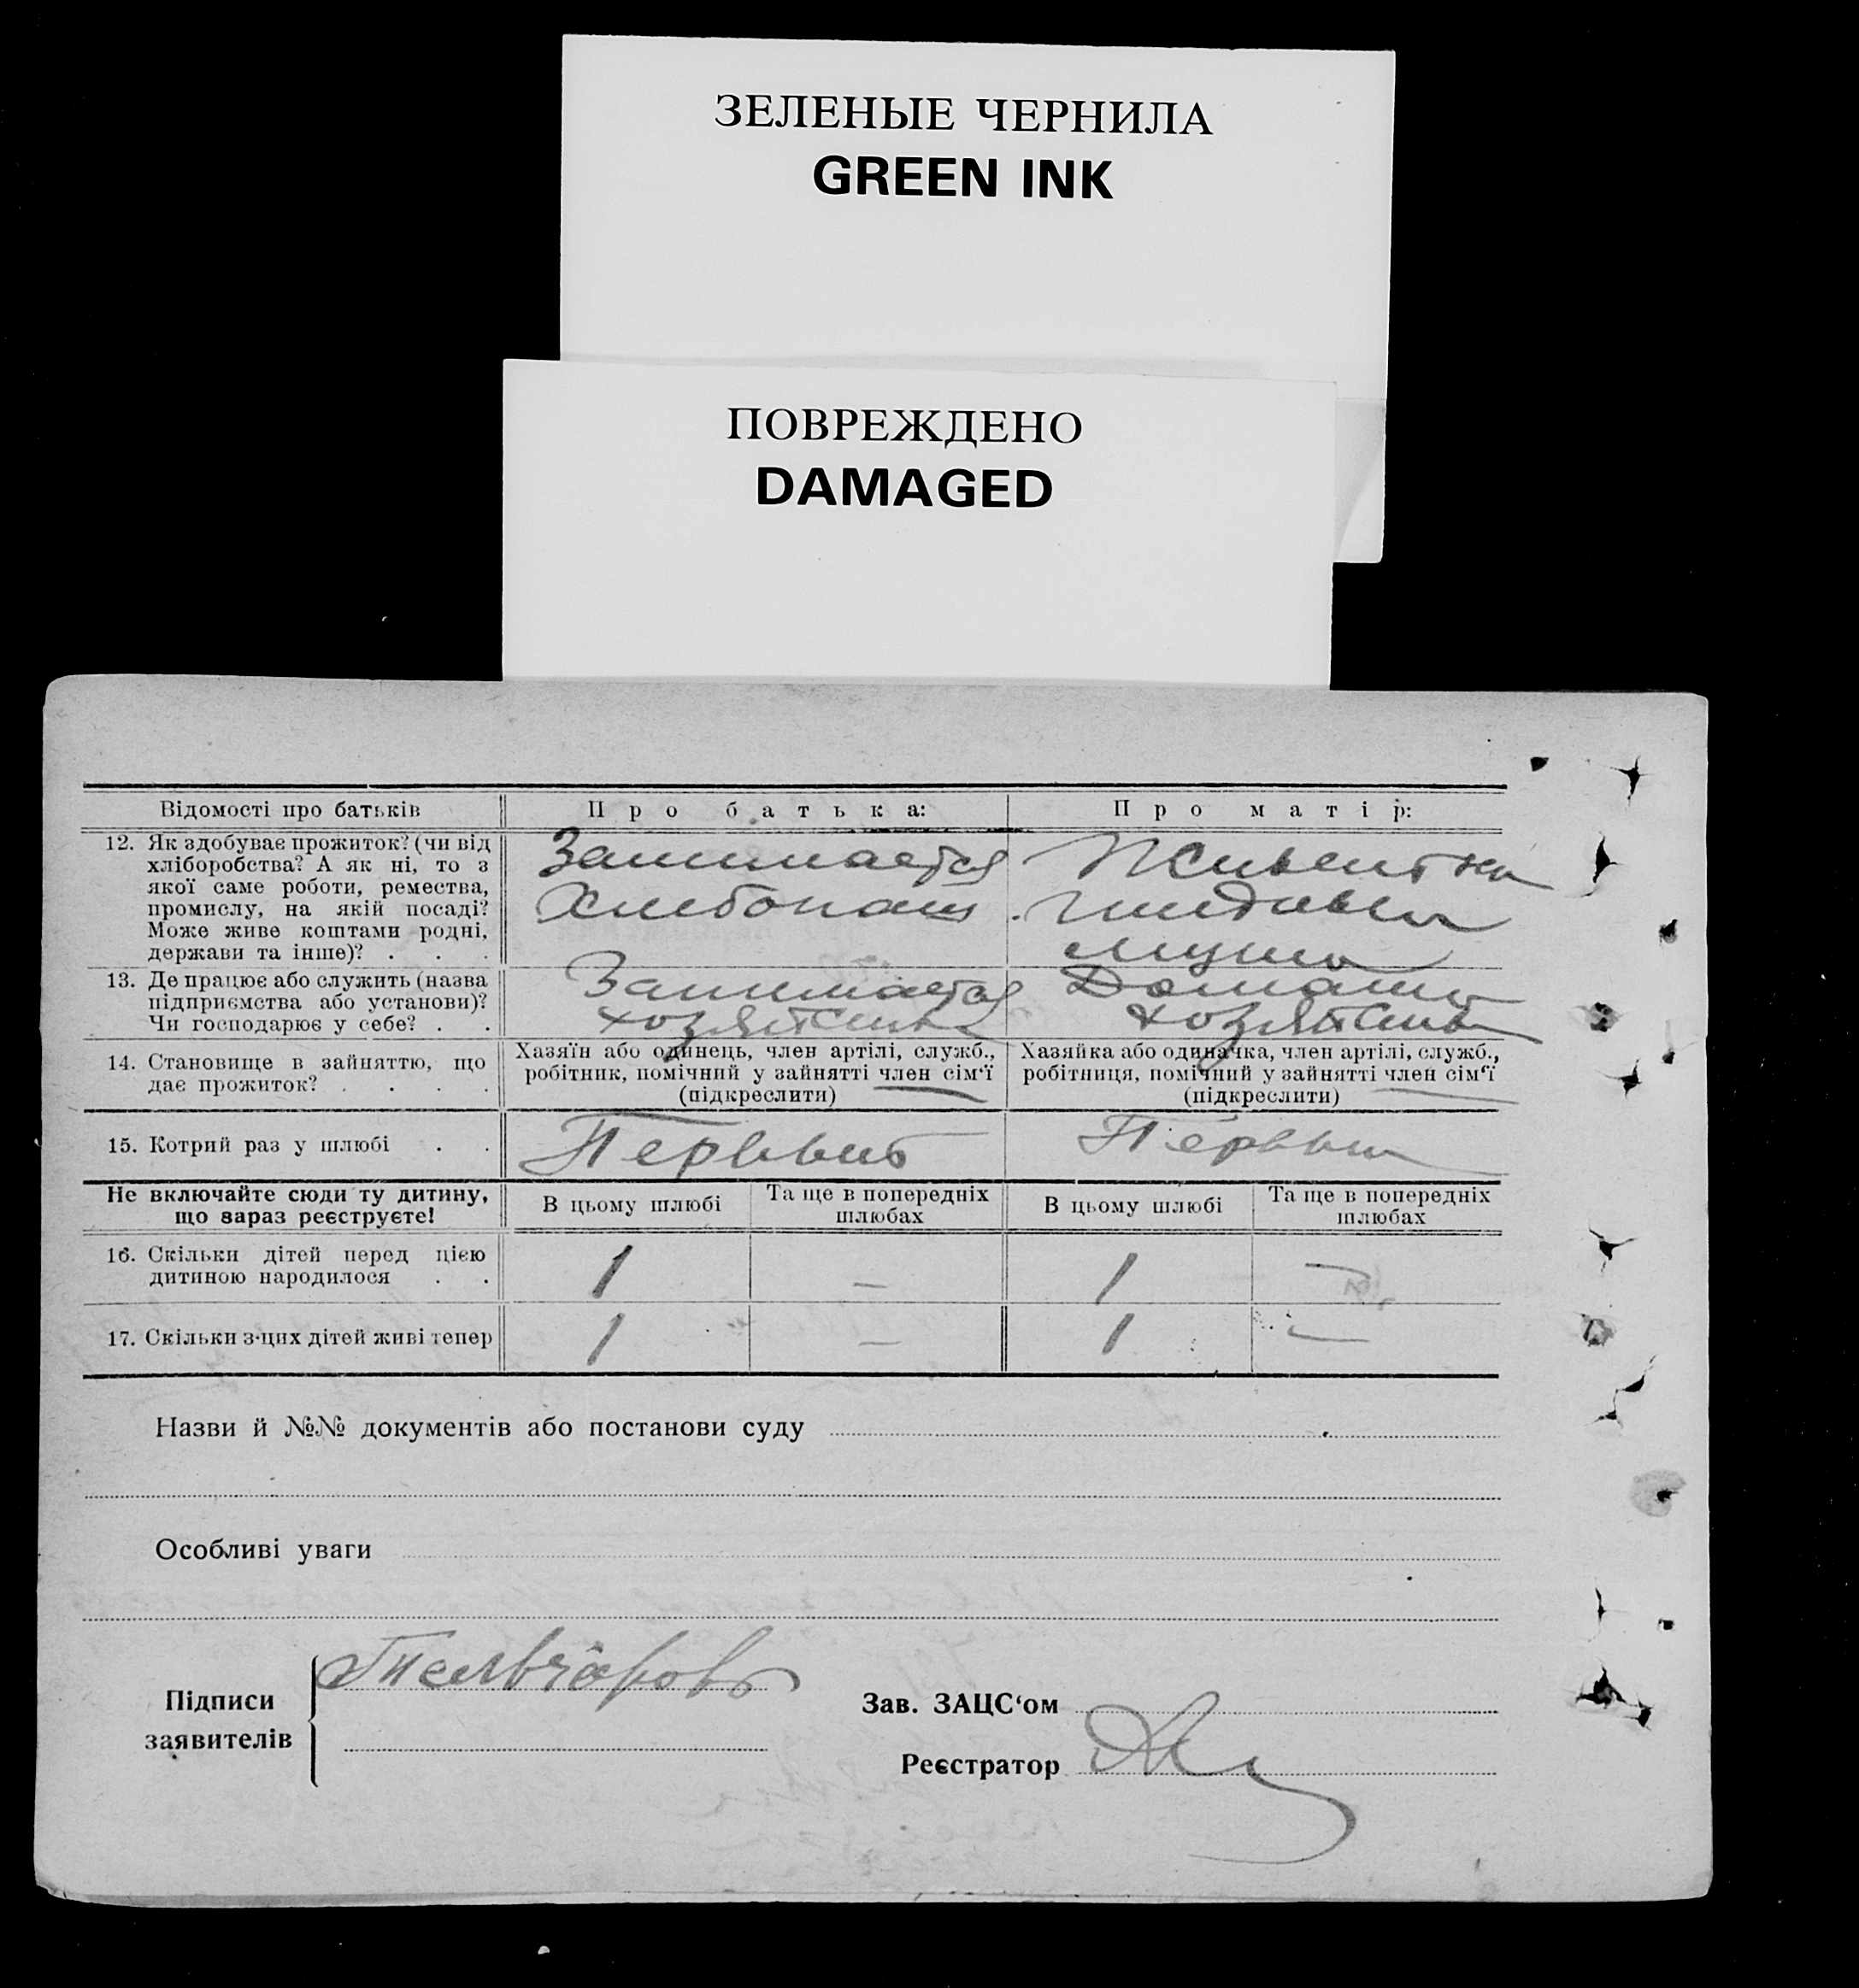 ЗЕЛЕНЫЕ ЧЕРНИЛА
GREEN INK
ПОВРЕЖДЕНО
DAMAGED
Відомості про батьків
Про батька:
Про матір:
12. Як здобуває прожиток? (чи від
хліборобства? А як ні, то з
якої саме роботи, ремества,
промислу, на якій посаді?
Може живе коштами родні,
держави та інше)? . . .
Занимается
Хлебопаш
Живет на
иждивен
мужа
13. Де працює або служить (назва
підприємства або установи)?
Чи господарює у себе? . .
Занимается
хозяйством
Домашн
хозяйством
14. Становище в зайняттю, що
дає прожиток? . . . .
Хазяїн або одинець, член артілі, служб.,
робітник, помічний у зайнятті член сім'ї
(підкреслити)
Хазяйка або одиначка, член артілі, служб.,
робітниця, помічний у зайнятті член сім'ї
(підкреслити)
15. Котрий раз у шлюбі . .
Первый
Первый
Не включайте сюди ту дитину,
що зараз реєструєте!
В цьому шлюбі
Та ще в попередніх
шлюбах
В цьому шлюбі
Та ще в попередніх
шлюбах
16. Скільки дітей перед цією
дитиною народилося . .
1 — 1 —
17. Скільки з цих дітей живі тепер
1 — 1 —
Назви й №№ документів або постанови суду
Особливі уваги
Підписи
заявителів
Зав. ЗАЦС'ом
Реєстратор